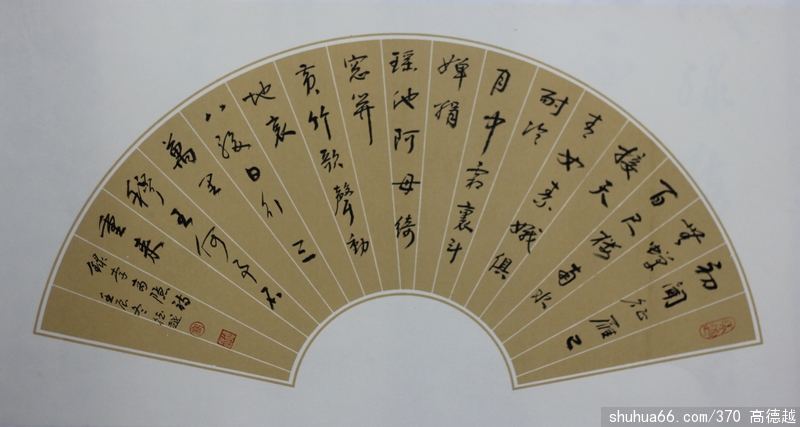 初聞征雁已
無蟬
百尺樓南水
接天
青女素娥俱
耐冷
月中霜裏斗
嬋娟
瑶池阿母綺
窓開
黄竹歌聲動
地哀
八駿日行三
萬里
穆王何事不
重来
録李商隐詩
壬辰冬德越
shuhua66.com/370 高德越